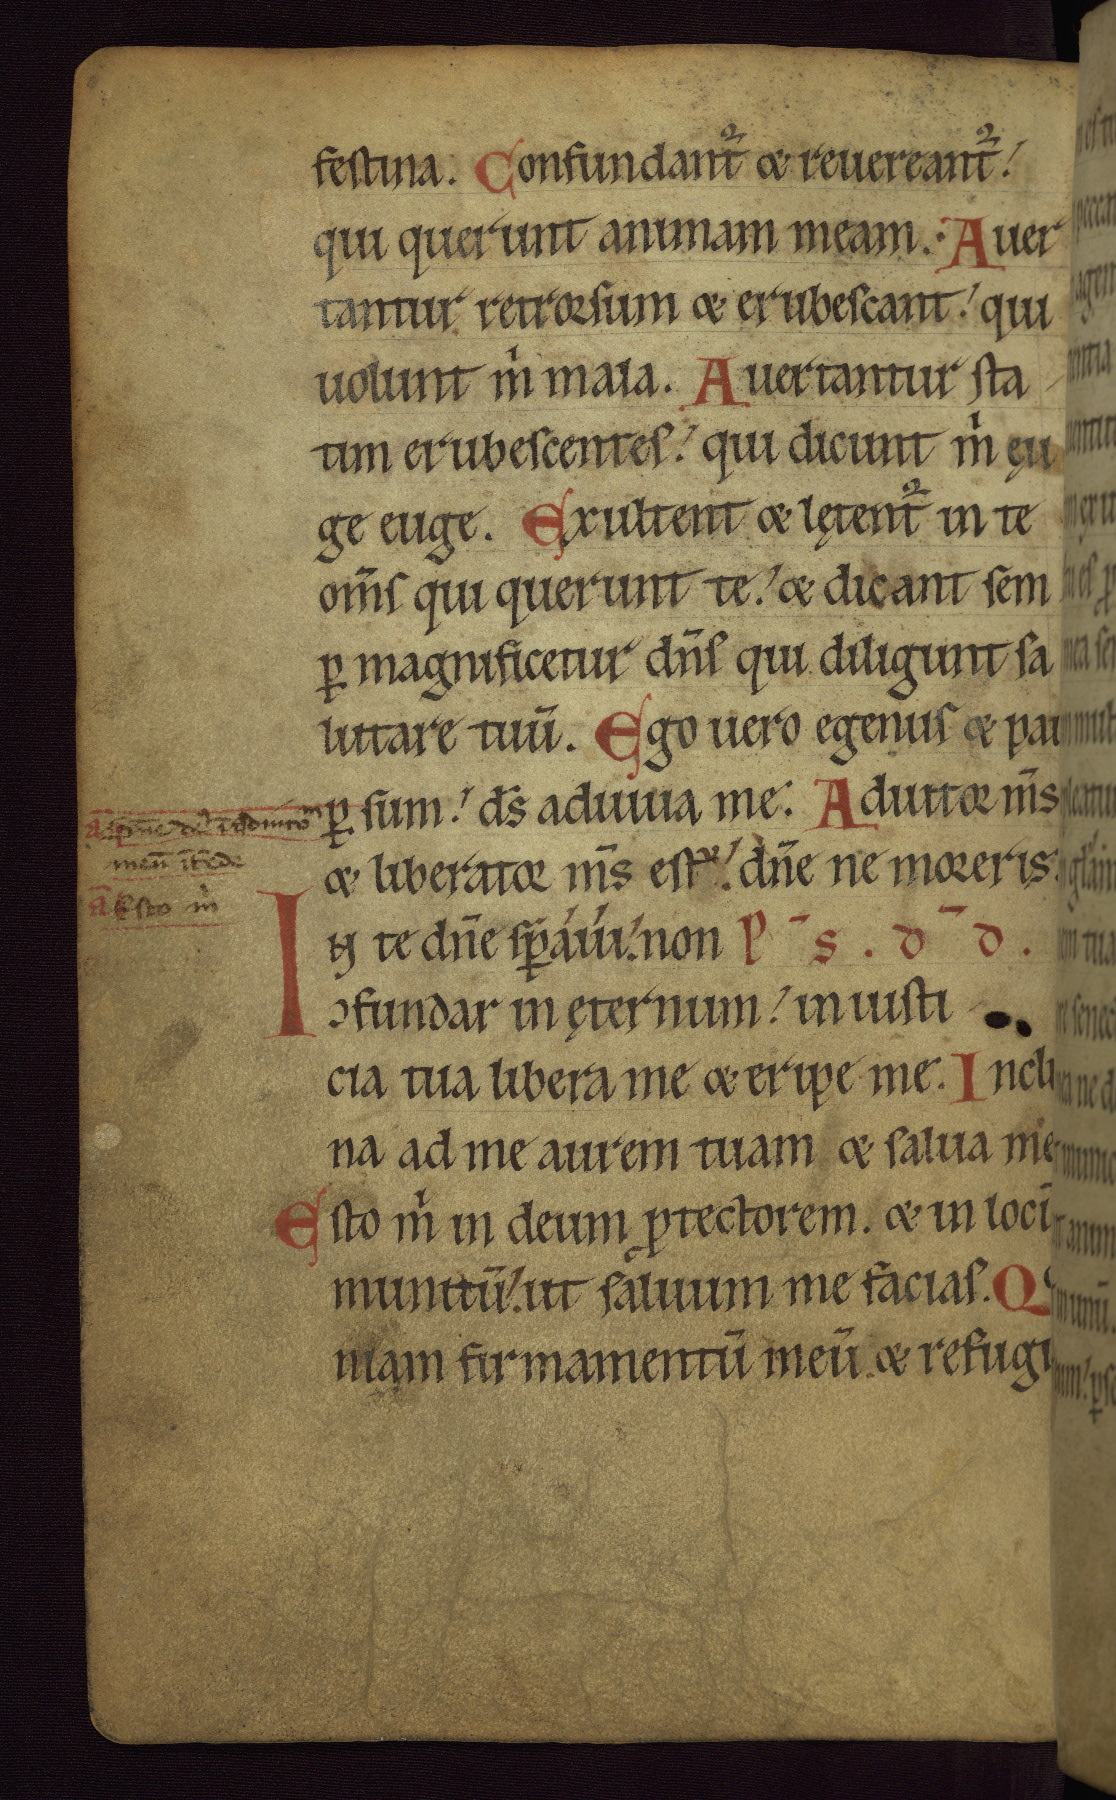 festina. Confundant᷑ & reuereant᷑!
qui querunt animam meam. Auer
tantur retrorsum & erubescant! qui
uolunt m̍ mala. Auertantur sta
tim erubescentes! qui dicunt m̍ ęu
ge euge. Exultent & lętent᷑ in te
om̄s qui querunt te! & dicant sem
ꝑ magnificetur dn̄s qui diligunt sa
lutare tuū. Ego uero egenus & pau
ꝑ sum! ds̄ adiuua me. Adiutor m̄s
& liberator m̄s est! dn̄e ne moreris.
In te dn̄e sꝑaui! non p̄s. dd̄.
ɔfundar in ęternum! in iusti
cia tua libera me & eripe me. Incli
na ad me aurem tuam & salua me
Esto m̍ in deum ꝓtectorem. & in locū
munitū! ut saluum me facias. Q
niam firmamentū meū & refugi
meū ītēde
a Esto m̍